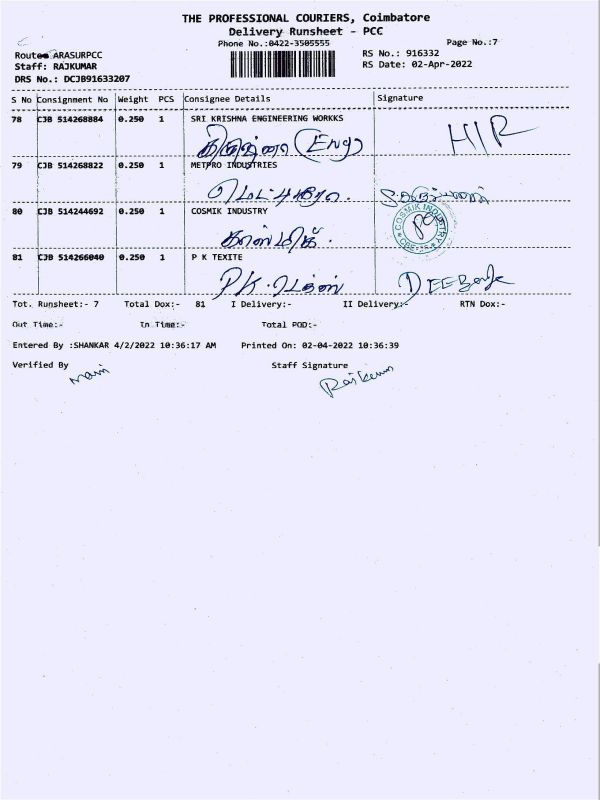 THE PROFESSIONAL COURIERS, Coimbatore
Delivery Runsheet - PCC
Phone No.:0422-3505555
Page No.:7
Route: ARASURPCC
RS No.: 916332
Staff: RAJKUMAR
RS Date: 02-Apr-2022
DRS No.: DCJB91633207
S No Consignment No Weight PCS Consignee Details Signature
78 CJB 514268884 0.250 1 SRI KRISHNA ENGINEERING WORKKS
(Eng) H/R
79 CJB 514268822 0.250 1 METPRO INDUSTRIES
80 CJB 514244692 0.250 1 COSMIK INDUSTRY
காஸ்மிக்.
COSMIK INDUSTRY
81 CJB 514266040 0.250 1 P K TEXITE
PK.
Tot. Runsheet:- 7 Total Dox:- 81 I Delivery:- II Delivery:- RTN Dox:-
Out Time:- In Time:- Total POD:-
Entered By :SHANKAR 4/2/2022 10:36:17 AM Printed On: 02-04-2022 10:36:39
Verified By Staff Signature
mani Rajkumar